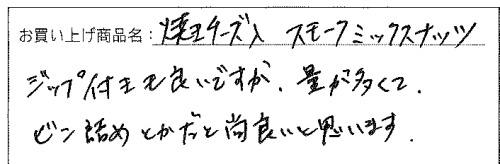 お買い上げ商品名：焼チーズ入 スモークミックスナッツ
ジップ付きも良いですが、量が多くて、
ビン詰めとかだと尚良いと思います．